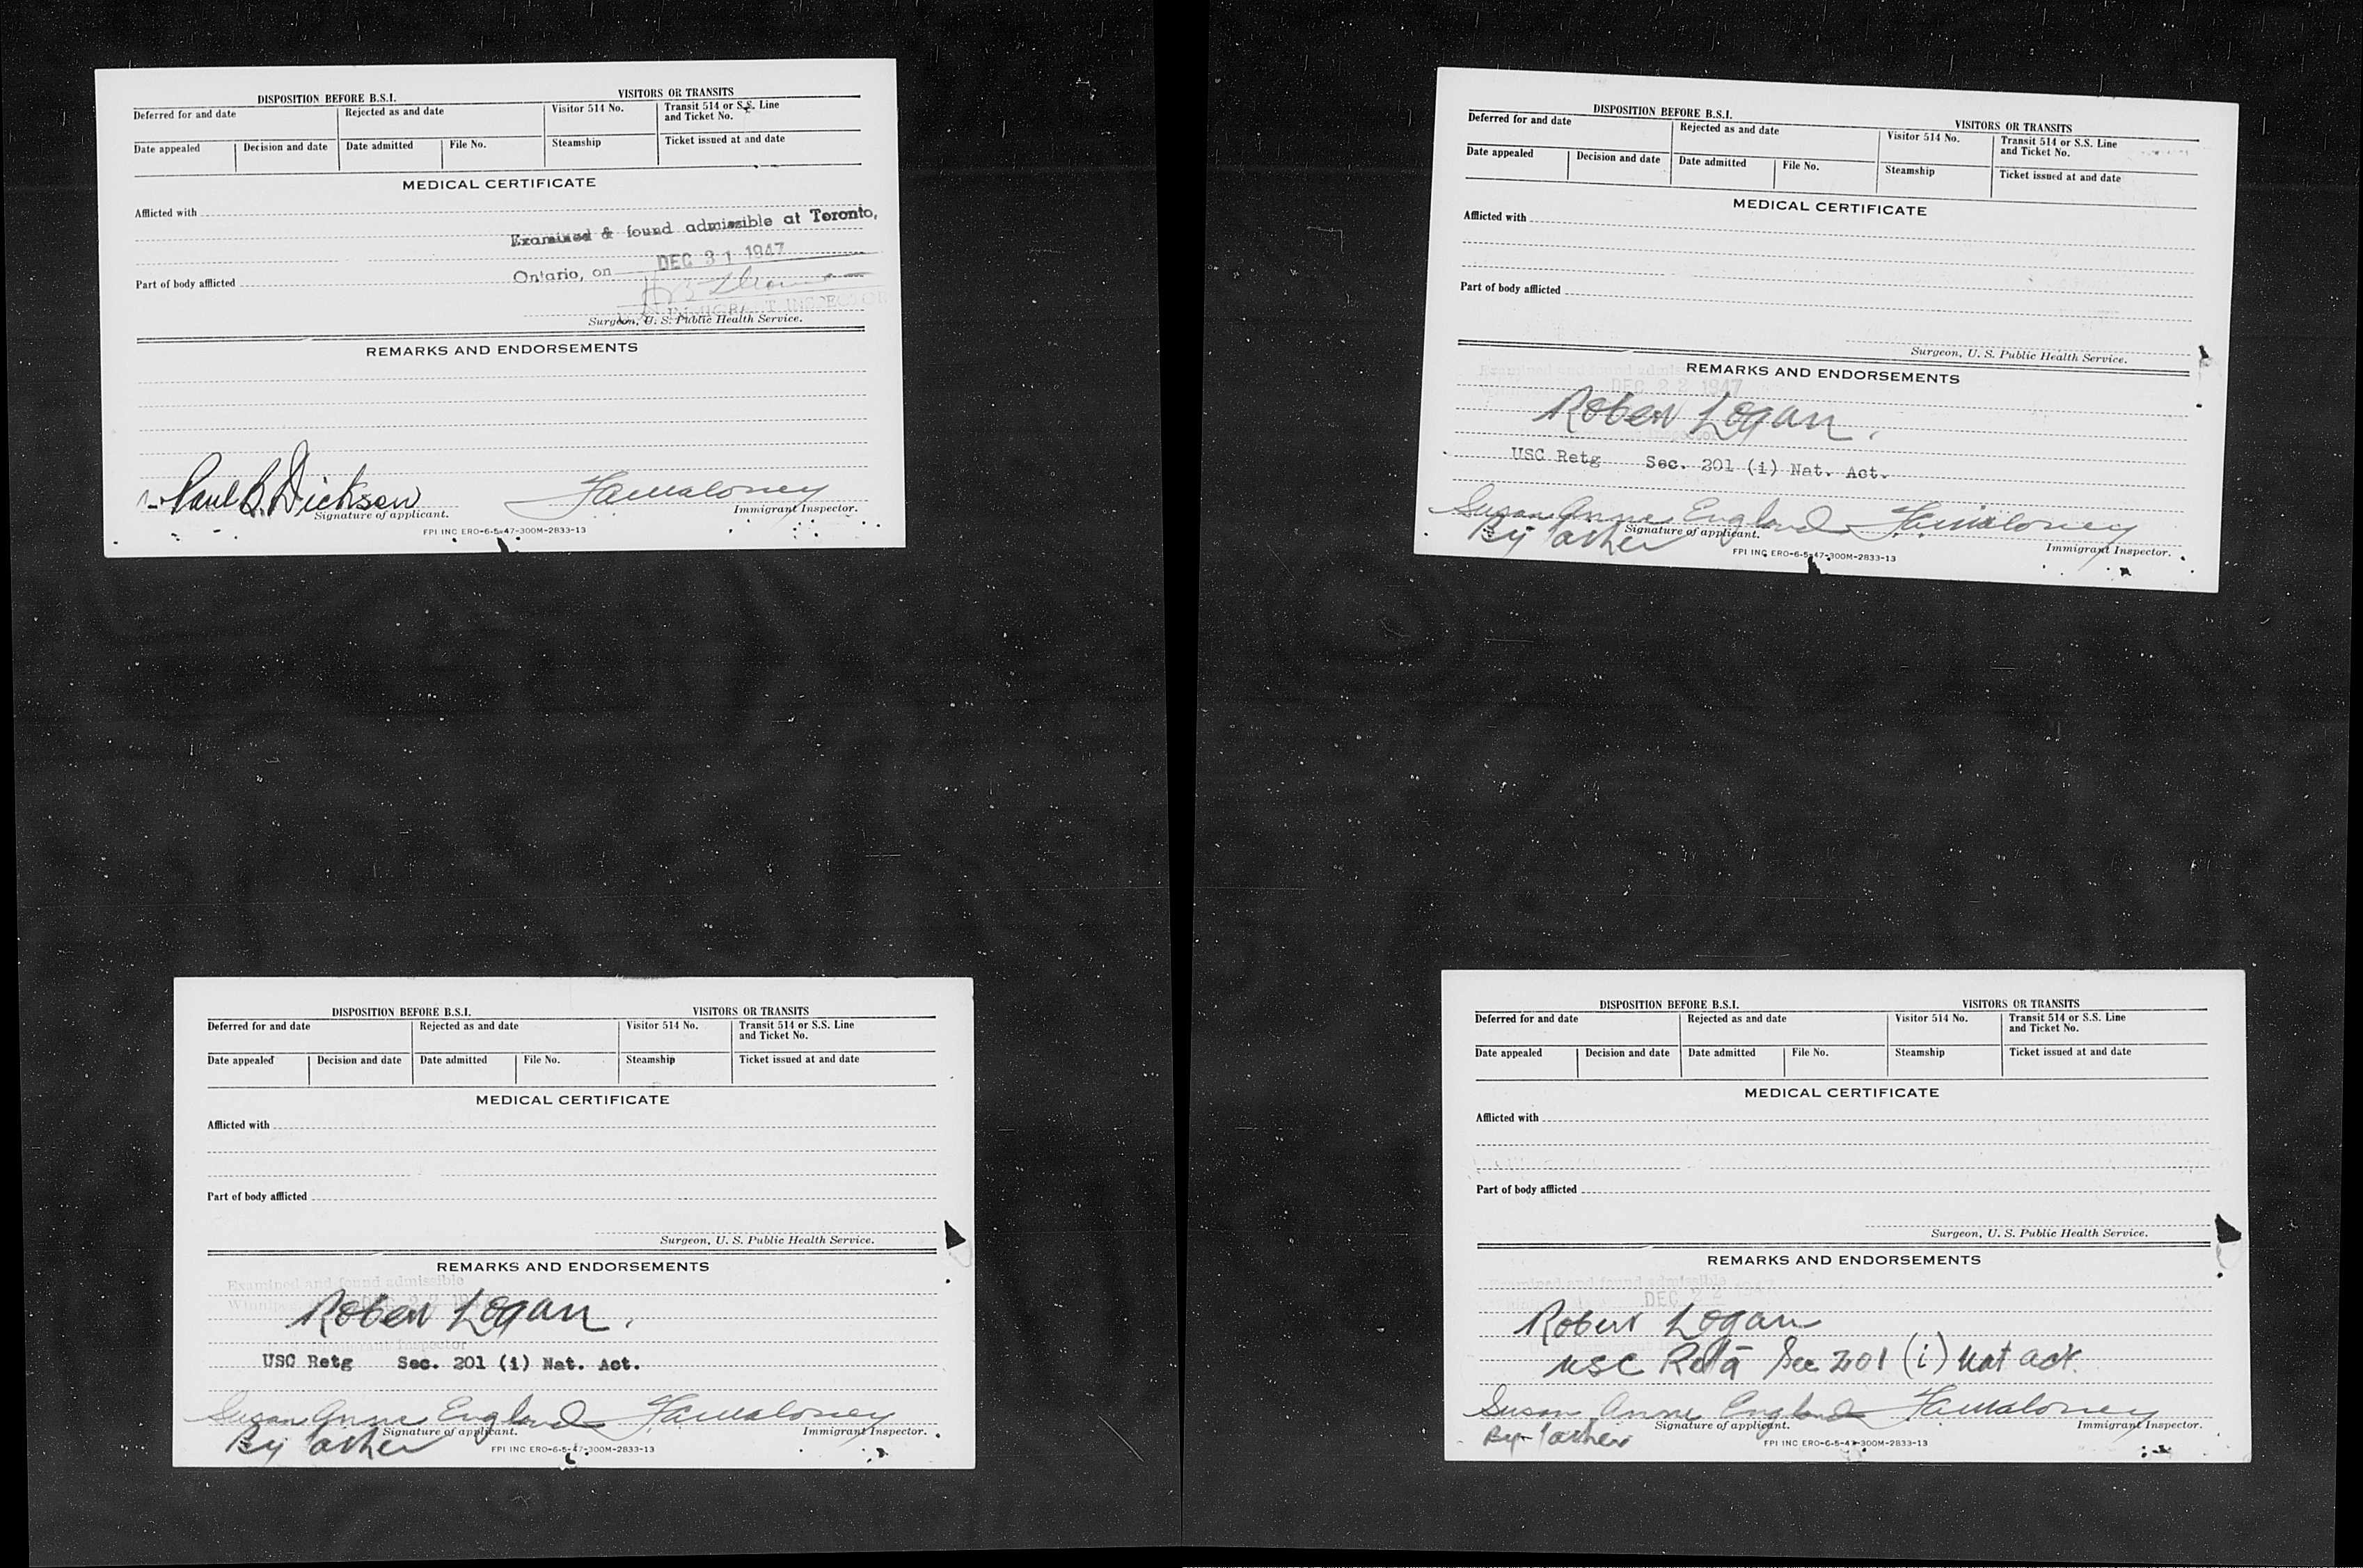 DISPOSITION BEFORE B.S.I. VISITORS OR TRANSITS
Deferred for and date Rejected as and date Visitor 514 No. Transit 514 or S.S. Line and Ticket No.
Date appealed Decision and date Date admitted File No. Steamship Ticket issued at and date
MEDICAL CERTIFICATE
Afflicted with
Examined & found admissible at Toronto,
Ontario, on DEC 31 1947
Part of body afflicted
IMMIGRANT INSPECTOR
Surgeon, U. S. Public Health Service.
REMARKS AND ENDORSEMENTS
Paul B. Dickson
Signature of applicant. Immigrant Inspector.
FPI INC ERO-6-5-47-300M-2833-13
DISPOSITION BEFORE B.S.I. VISITORS OR TRANSITS
Deferred for and date Rejected as and date Visitor 514 No. Transit 514 or S.S. Line and Ticket No.
Date appealed Decision and date Date admitted File No. Steamship Ticket issued at and date
MEDICAL CERTIFICATE
Afflicted with
Part of body afflicted
Surgeon, U. S. Public Health Service.
REMARKS AND ENDORSEMENTS
Examined and found
DEC 22 1947
Robert Logan.
USC Retg Sec. 201 (i) Nat. Act.
Susan Anne England Famaloney
By father Signature of applicant. Immigrant Inspector.
FPI INC ERO-6-5-47-300M-2833-13
DISPOSITION BEFORE B.S.I. VISITORS OR TRANSITS
Deferred for and date Rejected as and date Visitor 514 No. Transit 514 or S.S. Line and Ticket No.
Date appealed Decision and date Date admitted File No. Steamship Ticket issued at and date
MEDICAL CERTIFICATE
Afflicted with
Part of body afflicted
Surgeon, U. S. Public Health Service.
REMARKS AND ENDORSEMENTS
Examined and found admissible
DEC 22 194
Robert Logan.
Immigrant Inspector
USC Retg Sec. 201 (i) Nat. Act.
Susan Anne England Famaloney
By father Signature of applicant. Immigrant Inspector.
FPI INC ERO-6-5-47-300M-2833-13
DISPOSITION BEFORE B.S.I. VISITORS OR TRANSITS
Deferred for and date Rejected as and date Visitor 514 No. Transit 514 or S.S. Line and Ticket No.
Date appealed Decision and date Date admitted File No. Steamship Ticket issued at and date
MEDICAL CERTIFICATE
Afflicted with
Part of body afflicted
Surgeon, U. S. Public Health Service.
REMARKS AND ENDORSEMENTS
Examined and found admissible
DEC 22
Robert Logan
USC Retg Sec 201 (i) Nat act.
Susan Anne England Famaloney
By father Signature of applicant. Immigrant Inspector.
FPI INC ERO-6-5-47-300M-2833-13